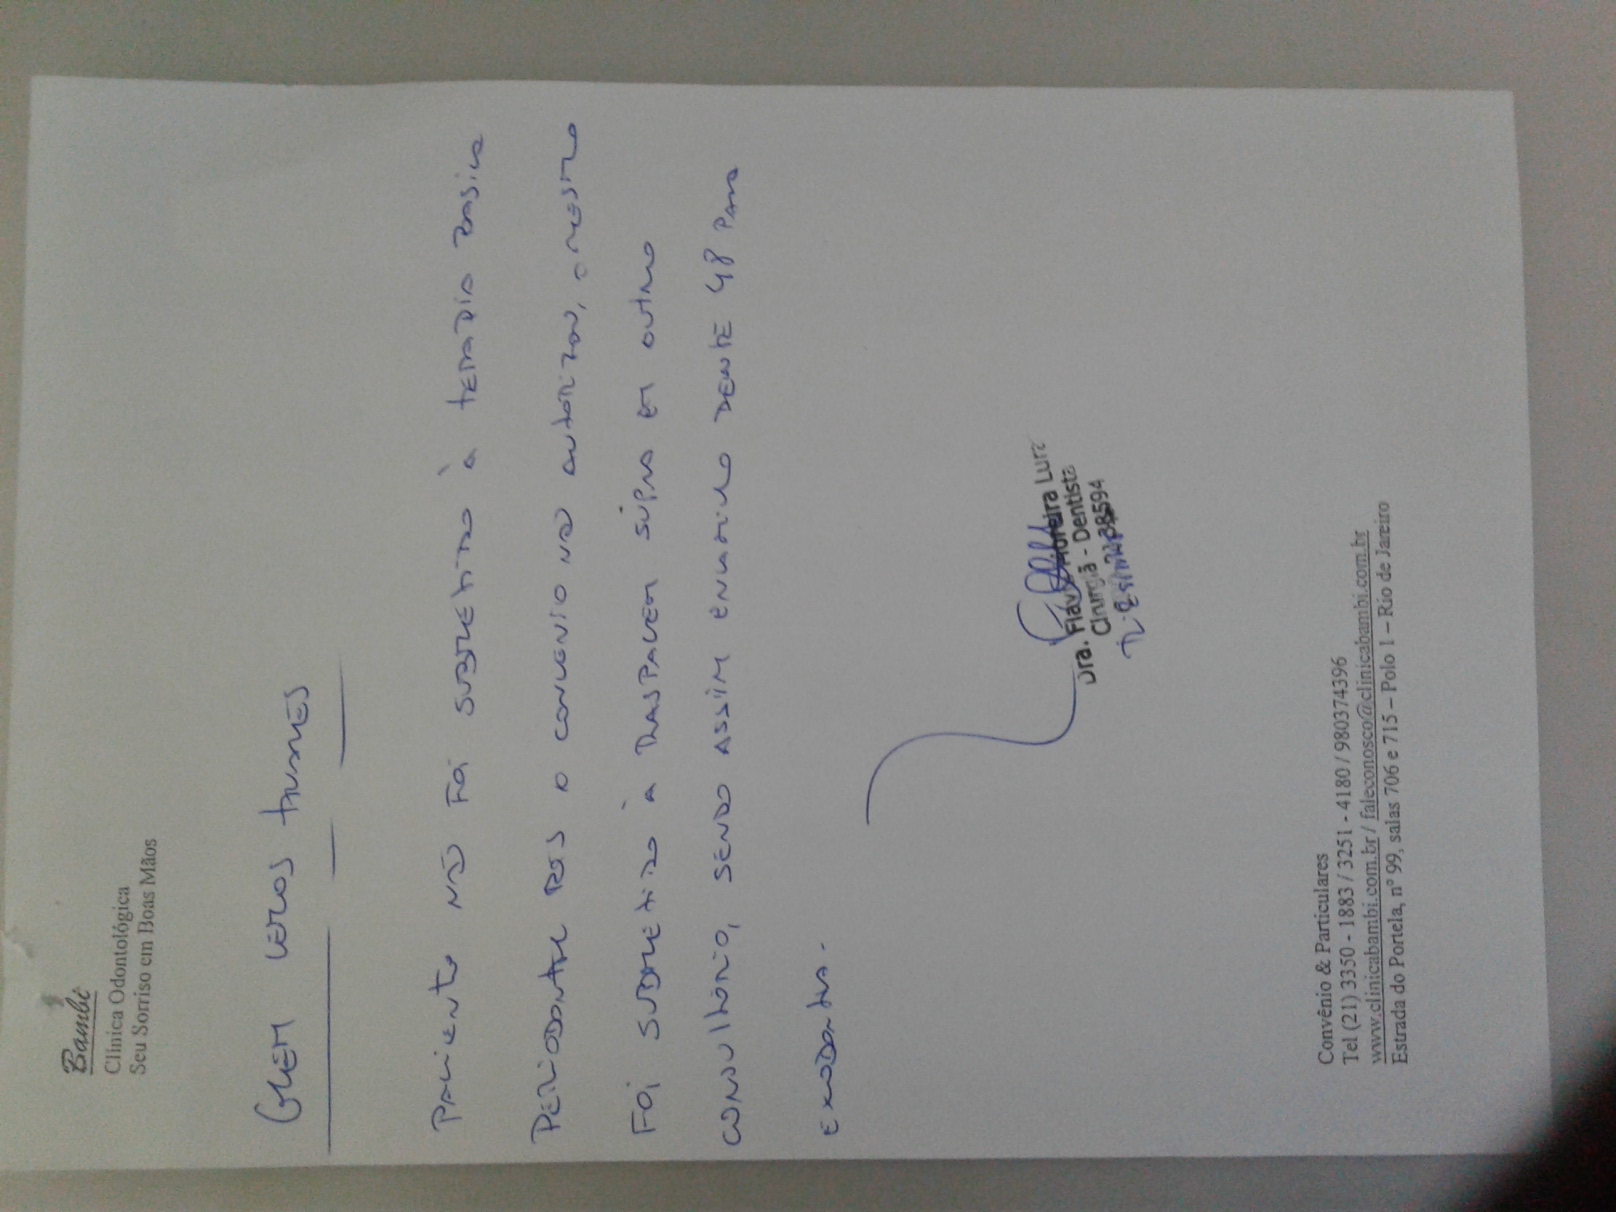 Bambi
Clínica Odontológica
Seu Sorriso em Boas Mãos
Paciente não foi submetido à terapia basica
Periodontal pois o convenio não autorizou, o mesmo
Foi submetido à raspagem supra em outro
consultório, sendo assim enviado dente 48 para
exodontia.
Dra. Moreira
Cirurgiã - Dentista
38594
Convênio & Particulares
Tel (21) 3350 - 1883 / 3251 - 4180 / 980374396
www.clinicabambi.com.br / faleconosco@clinicabambi.com.br
Estrada do Portela, nº 99, salas 706 e 715 – Polo 1 – Rio de Janeiro